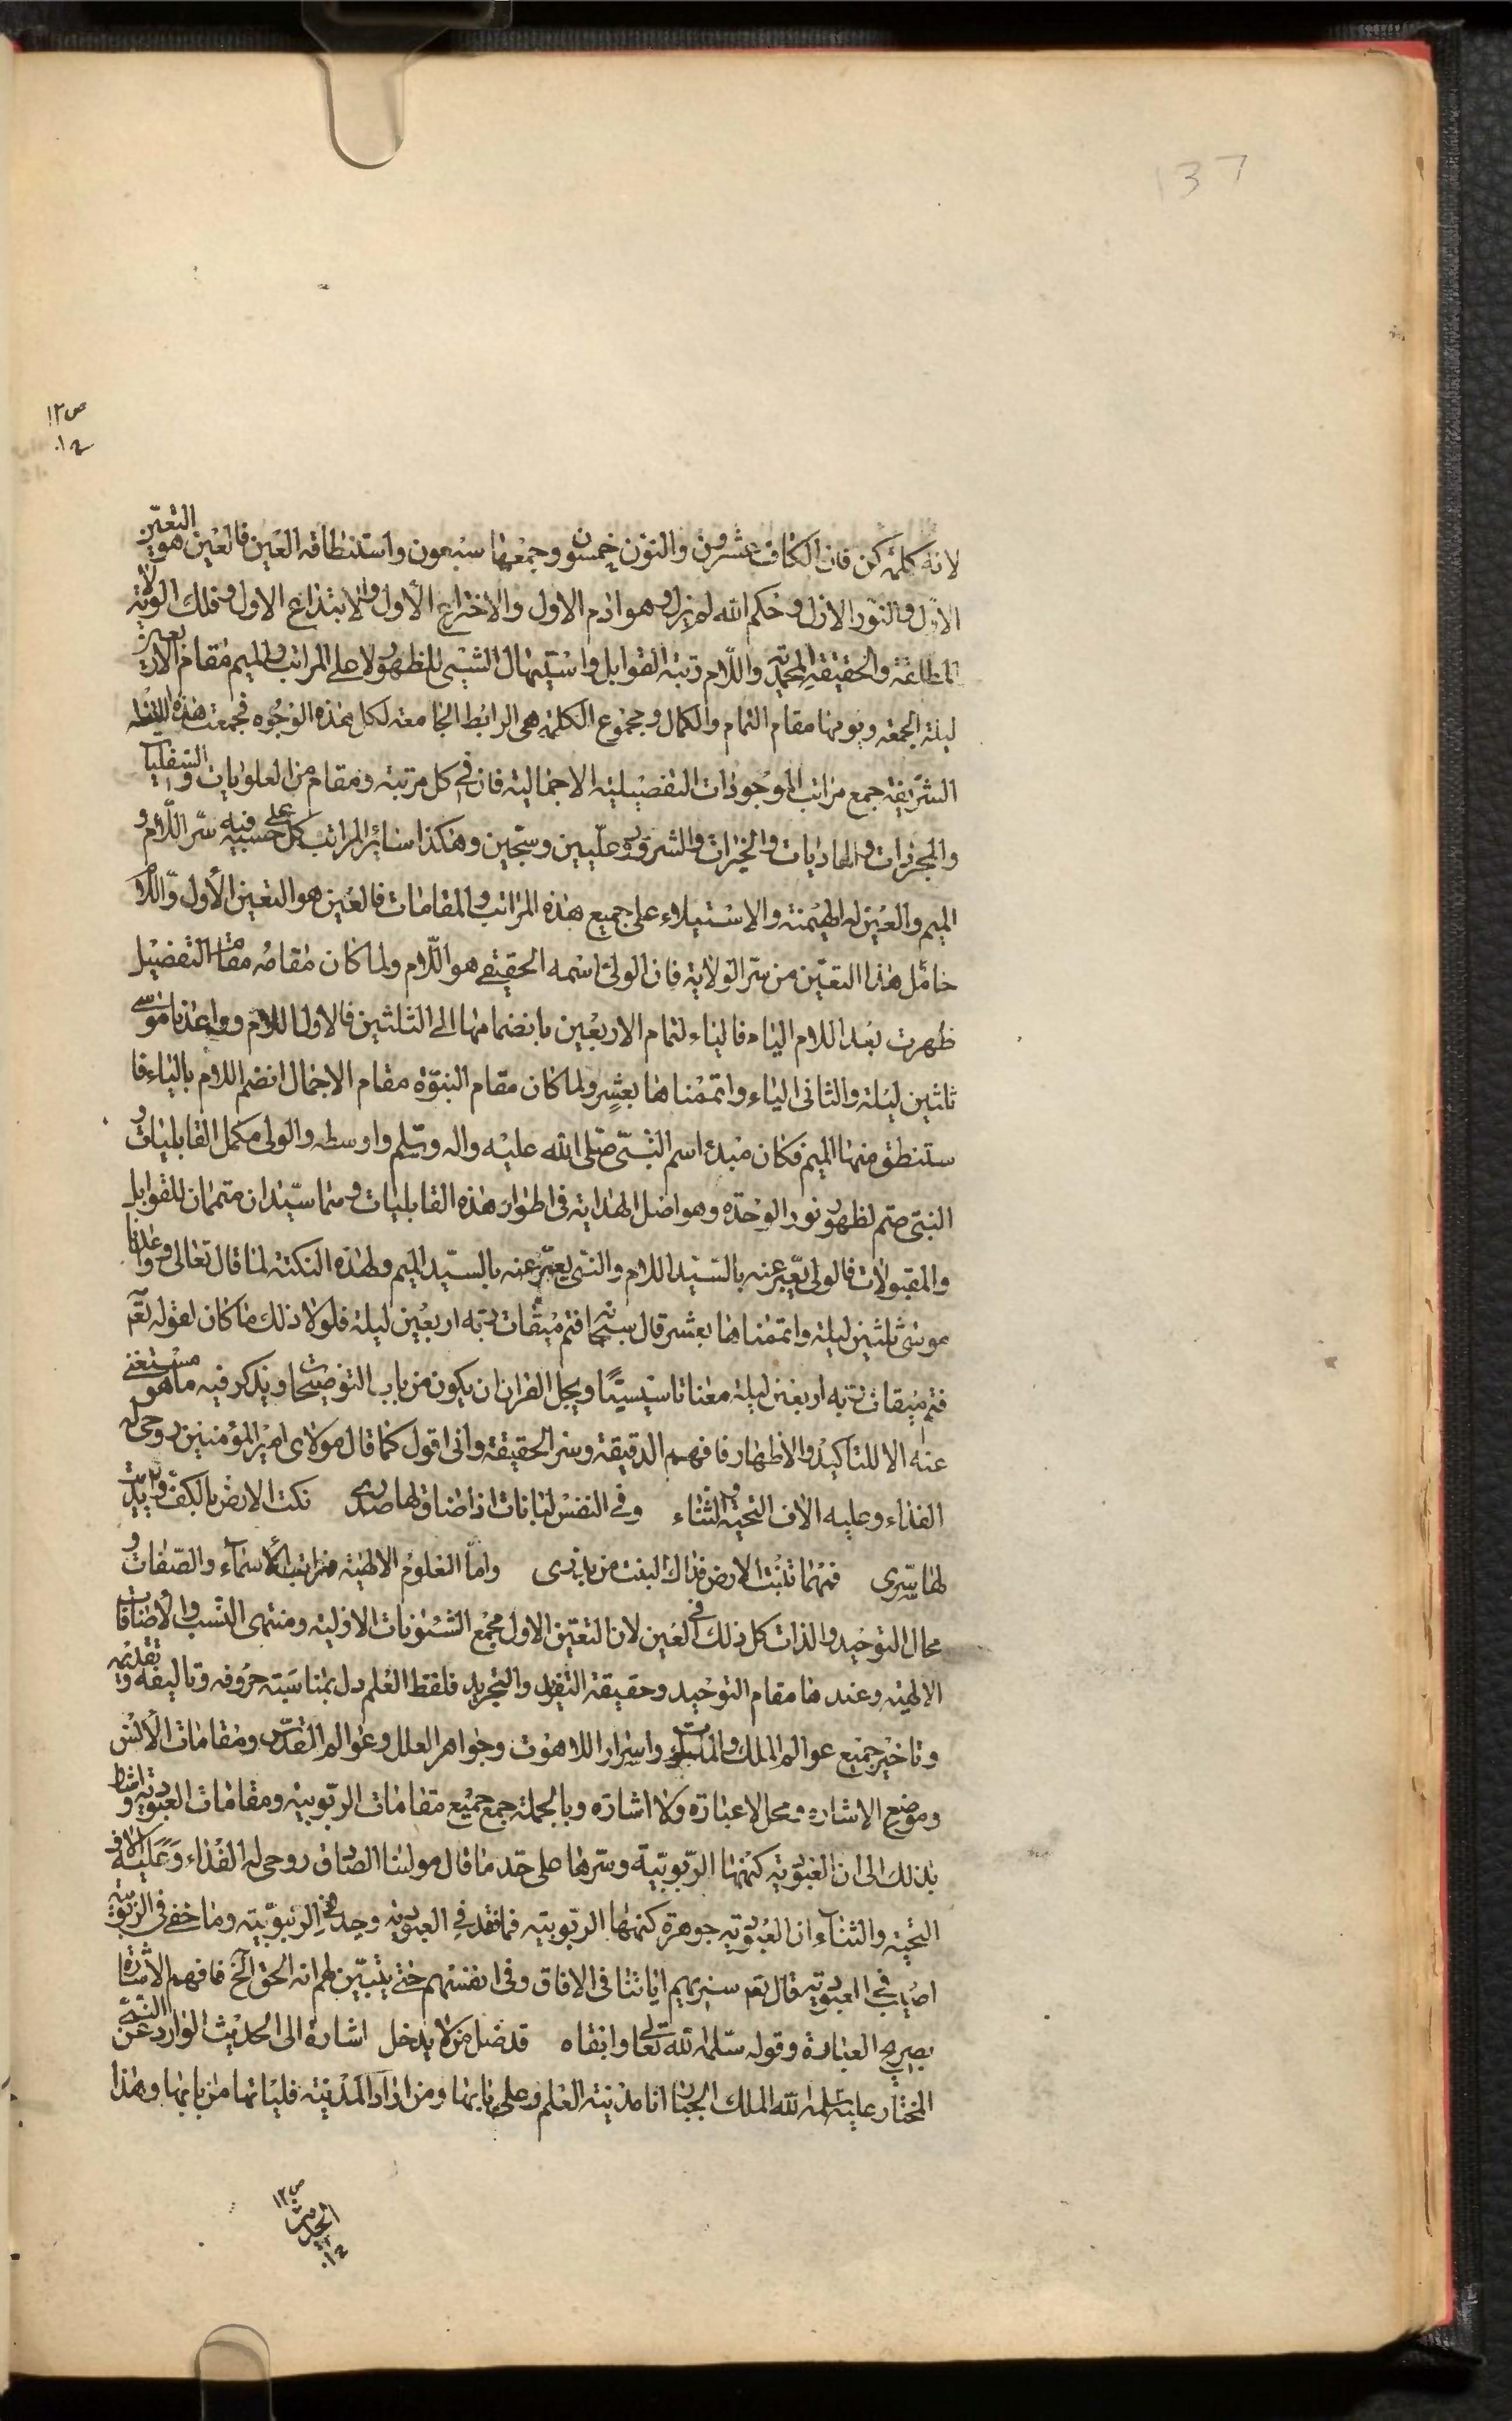 137
ص١٢
لانه كلمة كن فان الكاف عشرون والنون خمسون وجمعها سبعون واستنطاقه العين فالعين هو التعين
الاول والنور الازل وحكم الله لم يزل وهو ادم الاول والاختراع الأول والابتداع الاول وفلك الولاية
المطلقة والحقيقة المحمدية واللام رتبة القوابل واستيهال الشيى للظهور لا على المراتب والميم مقام الاربعين
ليلة الجمعه ويومها مقام التمام والكمال ومجموع الكلمة هى الرابط الجامعه لكل هذه الوجوه فجمعت هذه اللفظه
الشريفة جمع مراتب الموجودات التفصيلية الاجمالية فان في كل مرتبة ومقام من العلويات والسفليات
والمجردات والماديات والخيرات والشرور وعليين وسجين وهكذا ساير المراتب كل على حسبه فيه سر اللام و
الميم والعين له الهيمنة والاستيلاء على جميع هذه المراتب والمقامات فالعين هو التعين الأول واللام
حامل هذا التعين من سر الولاية فان الولى اسمه الحقيقى هو اللام ولما كان مقامه مقام التفصيل
ظهرت بعد اللام الياء فالياء لتمام الاربعين بانضمامها الى الثلثين فالاول اللام وواعدنا موسى
ثلثين ليلة والثانى الياء واتممناها بعشر ولما كان مقام النبوة مقام الاجمال انضم اللام بالياء فا
ستنطق منها الميم فكان مبدء اسم النبى صلى الله عليه واله وسلم واوسطه والولى مكمل القابليات و
النبى متم لظهور نور الوحدة وهو اصل الهداية فى اطوار هذه القابليات وهما سيدان متممان للقوابل
والمقبولات فالولى يعبر عنه بالسيد اللام والنبى يعبر عنه بالسيد الميم ولهذه النكتة لما قال تعالى وواعدنا
موسى ثلثين ليلة واتممناها بعشر قال سبحانه فتم ميقات ربه اربعين ليلة فلولا ذلك ما كان لقوله تعم
فتم ميقات ربه اربعين ليلة معنا تاسيسيًا ويجل القران ان يكون من باب التوضيحات ويذكر فيه ما هو مستغنى
عنه الا للتاكيد والاظهار فافهم الدقيقة وسر الحقيقة وانى اقول كما قال مولاى امير المؤمنين روحى له
الفداء وعليه الاف التحية والثناء وفى النفس لبانات اذا ضاق لها صدرى نكت الارض بالكف وابديت
لها سرى فمهما تنبت الارض فذاك النبت من بذرى واما العلوم الالهية مراتب الأسماء والصفات و
محال التوحيد والذات كل ذلك فى العين لان التعين الاول مجمع الشئونات الاولية ومنتهى النسب والاضافات
الالهية وعندها مقام التوحيد وحقيقة التفريد والتجريد فلفظ العلم دل بمناسبة حروفه وتاليفه وتقديمه
وتاخير جميع عوالم الملك والملكوت واسرار اللاهوت وجواهر العلل وعوالم القدس ومقامات الأنس
وموضع الاشارة ومحل لا عبارة ولا اشارة وبالجملة جمع جميع مقامات الربوبية ومقامات العبودية واشار
بذلك الى ان العبودية كنهها الربوبية وسرها على حد ما قال مولينا الصادق روحى له الفداء وعليه الاف
التحية والثناء ان العبودية جوهرة كنهها الربوبية فما فقد فى العبودية وجد فى الربوبية وما خفى فى الربوبية
اصيب فى العبودية قال تعم سنريهم اياتنا فى الافاق وفى انفسهم حتى يتبين لهم انه الحق الخ فافهم الاشارة
بصريح العبارة وقوله سلمه الله تعالى وابقاه قد ضل من لا يدخل اشارة الى الحديث الوارد عن النبى
المختار عليه سلم الله الملك الجبار انا مدينة العلم وعلى بابها ومن اراد المدينة فلياتها من بابها وهذا
ص١٢